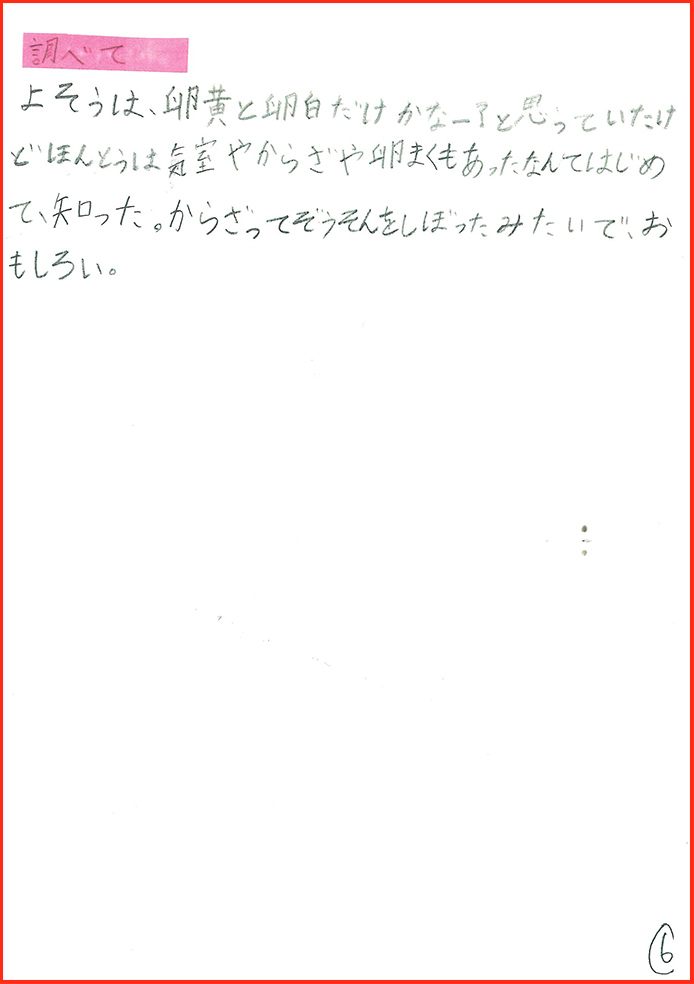 調べて
よそうは、卵黄と卵白だけかなー?と思っていたけ
どほんとうは気室やからざや卵まくもあったなんてはじめ
て、知った。からざってぞうそんをしぼったみたいで、お
もしろい。
6